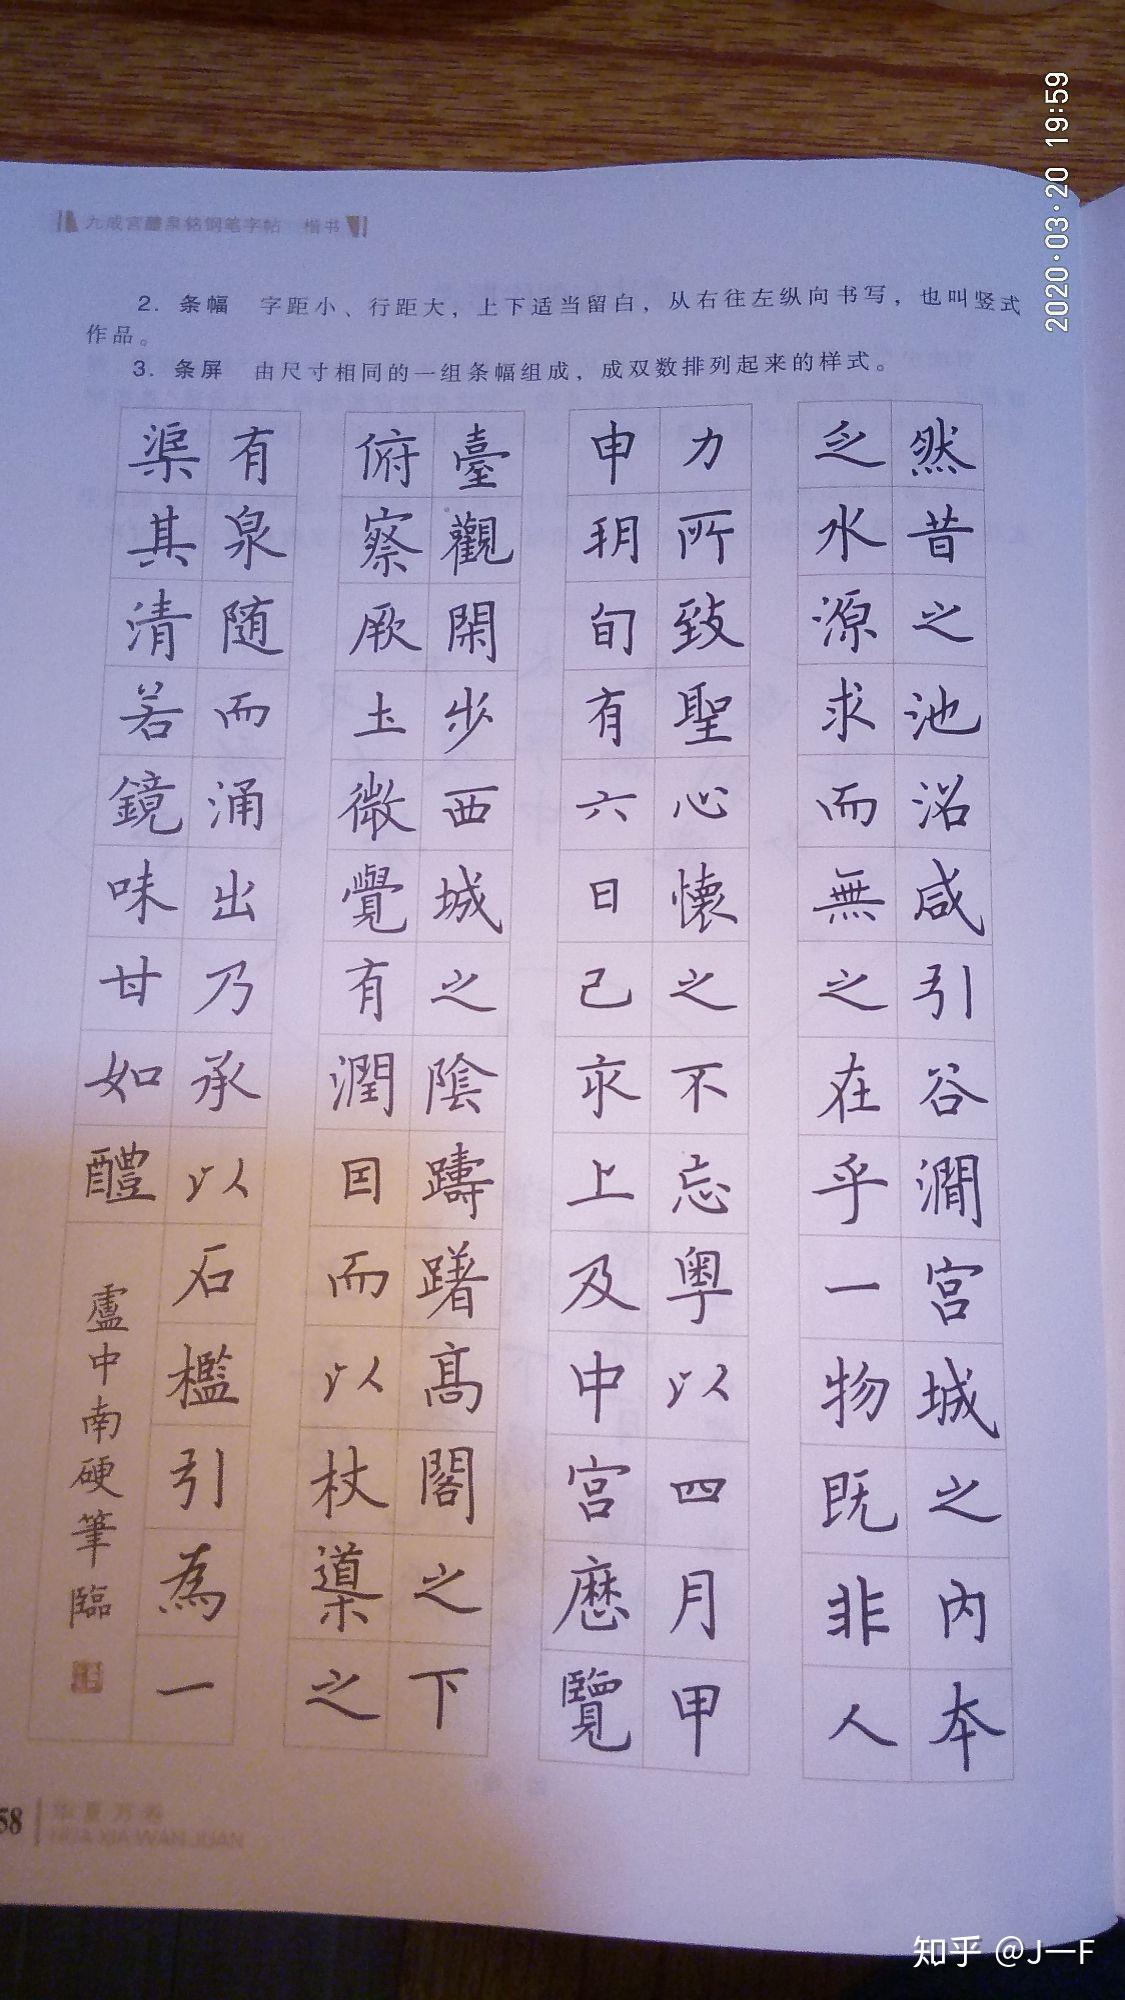 九成宫醴泉铭钢笔字帖 楷书
2. 条幅 字距小、行距大，上下适当留白，从右往左纵向书写，也叫竖式
作品。
3. 条屏 由尺寸相同的一组条幅组成，成双数排列起来的样式。
然昔之池沼咸引谷澗宫城之内夲
乏水源求而無之在乎一物既非人
力所致聖心懷之不忘粤以四月甲
申玥旬有六日己亥上及中宫歷覽
臺觀閑步西城之陰躊躇高閣之下
俯察厥土微覺有潤因而以杖導之
有泉随而涌出乃承以石檻引為一
渠其清若鏡味甘如醴
盧中南硬筆臨
58
华夏万卷
HUA XIA WAN JUAN
2020·03·20 19:59
知乎 @J—F